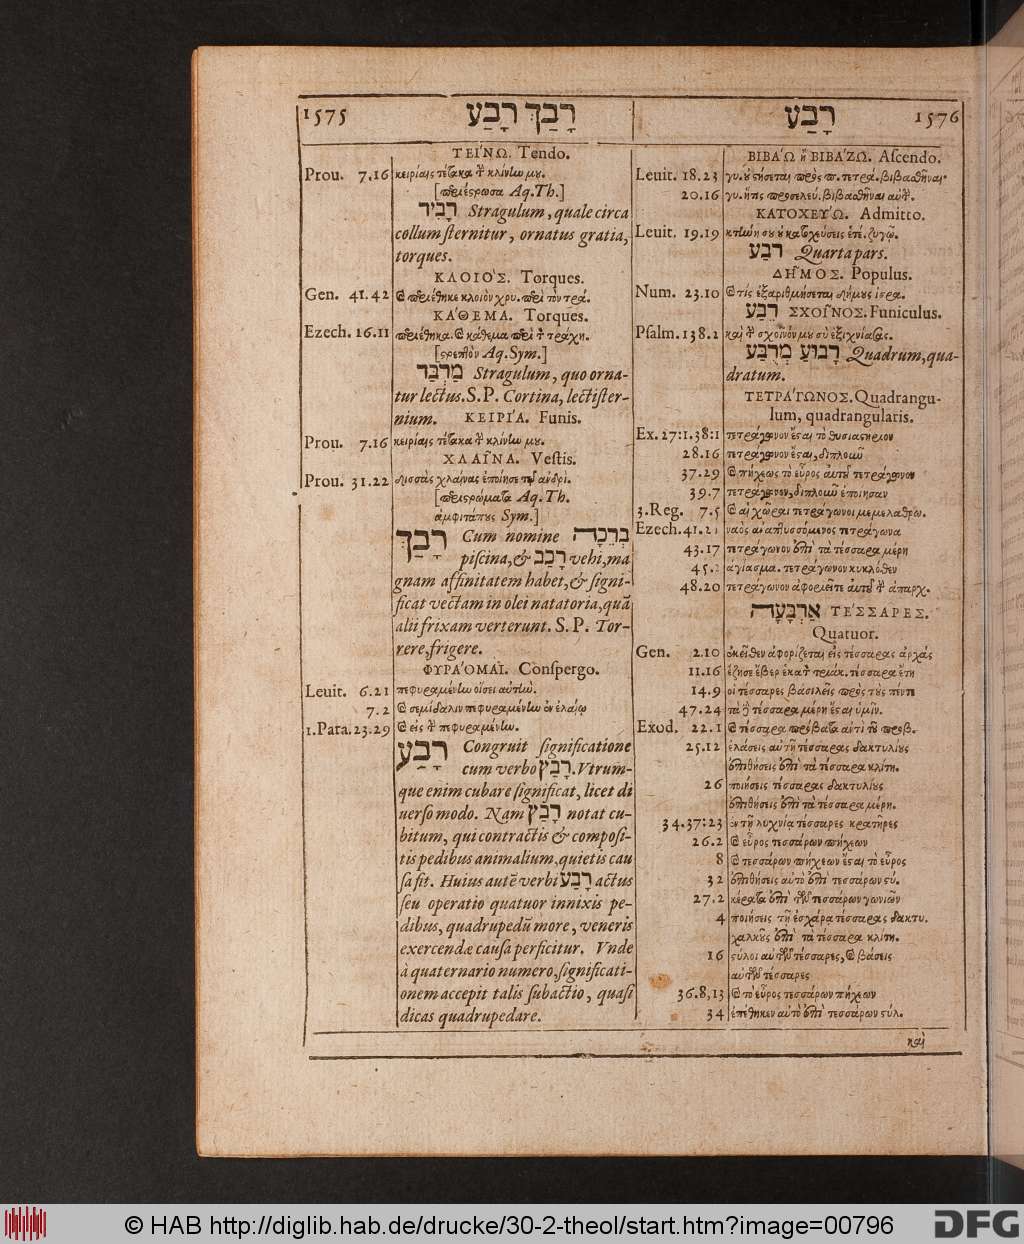 1575 רָבַךְ רָבַע
ΤΕΙ'ΝΩ. Tendo.
Prou. 7.16 κειρίαις τέτακα τὴν κλίνην μου.
[περιέστρωσα Aq.Th.]
רָבִיד Stragulum, quale circa
collum sternitur, ornatus gratia,
torques.
ΚΛΟΙΟ'Σ. Torques.
Gen. 41.42 καὶ περιέθηκε κλοιὸν χρυ. περὶ τὸν τρά.
ΚΑ'ΘΕΜΑ. Torques.
Ezech. 16.11 περιέθηκα. καὶ κάθεμα περὶ τὸν τράχη.
[στρεπτὸν Aq.Sym.]
מַרְבַד Stragulum, quo orna-
tur lectus. S.P. Cortina, lectister-
nium. ΚΕΙΡΙ'Α. Funis.
Prou. 7.16 κειρίαις τέτακα τὴν κλίνην μου.
ΧΛΑΓ͂ΝΑ. Vestis.
Prou. 31.22 δισσὰς χλαίνας ἐποίησε τῷ ἀνδρί.
[περιστρώματα Aq. Th.
ἀμφιτάπους Sym.]
רָבַךְ Cum nomine בְרֵכָה
piscina, & רָכַב vehi, ma
gnam affinitatem habet, & signi-
ficat vectam in olei natatoria, quā
alii frixam verterunt. S.P. Tor-
rere, frigere.
ΦΥΡΑ'ΟΜΑΙ. Conspergo.
Leuit. 6.21 πεφυραμένην οἴσει αὐτήν.
7.2 καὶ σεμίδαλιν πεφυραμένην ἐν ἐλαίῳ
1.Para. 23.29 καὶ εἰς τὴν πεφυραμένην.
רָבַע Congruit significatione
cum verbo רָבַץ. Vtrum-
que enim cubare significat, licet di
uerso modo. Nam רָבַץ notat cu-
bitum, qui contractis & composi-
tis pedibus animalium, quietis cau
sa fit. Huius autē verbi רָבַע actus
seu operatio quatuor innixis pe-
dibus, quadrupedū more, veneris
exercendæ causa perficitur. Vnde
à quaternario numero, significati-
onem accepit talis subactio, quasi
dicas quadrupedare.
רָבַע 1576
ΒΙΒΑ'Ω ἢ ΒΙΒΑ'ΖΩ. Ascendo.
Leuit. 18.23 γυ. οὐ στήσεται πρὸς π. τετρά. βιβασθῆναι.
20.16 γυ. ἥτις προσελεύ. βιβασθῆναι αὐτήν.
ΚΑΤΟΧΕΥ'Ω. Admitto.
Leuit. 19.19 κτήνη σου οὐ κατοχεύσεις ἑτέ. ζυγῷ.
רֹבַע Quarta pars.
ΔΗ͂ΜΟΣ. Populus.
Num. 23.10 καὶ τίς ἐξαριθμήσεται δήμους ἰσρα.
רֶבַע ΣΧΟΓ͂ΝΟΣ. Funiculus.
Psalm. 138.2 καὶ τὴν σχοῖνόν μου σὺ ἐξιχνίασας.
רָבוּעַ מְרֻבַּע Quadrum, qua-
dratum.
ΤΕΤΡΑ'ΓΩΝΟΣ. Quadrangu-
lum, quadrangularis.
Ex. 27:1.38:1 τετράγωνον ἔσται τὸ θυσιαστήριον
28.16 τετράγωνον ἔσται, διπλοῦν
37.29 καὶ πήχεως τὸ εὖρος αὐτοῦ τετράγωνον
39.7 τετράγωνον, διπλοῦν ἐποίησαν
3.Reg. 7.5 καὶ αἱ χῶραι τετράγωνοι μεμελαθρω.
Ezech. 41.21 ναὸς ἀναπτυσσόμενος τετράγωνα
43.17 τετράγωνον ἐπὶ τὰ τέσσαρα μέρη
45.2 ἁγίασμα. τετράγωνον κυκλόθεν
48.20 τετράγωνον ἀφοριεῖτε αὐτοῦ τὴν ἀπαρχ.
אַרְבָּעָה ΤΕ'ΣΣΑΡΕΣ.
Quatuor.
Gen. 2.10 ἐκεῖθεν ἀφορίζεται εἰς τέσσαρας ἀρχάς
11.16 ἔζησε ἕβερ ἑκατὸν τριάκ. τέσσαρα ἔτη
14.9 οἱ τέσσαρες βασιλεῖς πρὸς τοὺς πέντε
47.24 τὰ δὲ τέσσαρα μέρη ἔσται ὑμῖν.
Exod. 22.1 καὶ τέσσαρα πρόβατα ἀντὶ τοῦ προβ.
25.12 ἐλάσεις αὐτῇ τέσσαρας δακτυλίους
ἐπιθήσεις ἐπὶ τὰ τέσσαρα κλίτη.
26 ποιήσεις τέσσαρας δακτυλίους
ἐπιθήσεις ἐπὶ τὰ τέσσαρα μέρη.
34.37:23 ἐν τῇ λυχνίᾳ τέσσαρες κρατῆρες
26.2 καὶ εὖρος τεσσάρων πήχεων
8 καὶ τεσσάρων πήχεων ἔσται τὸ εὖρος
32 ἐπιθήσεις αὐτὸ ἐπὶ τεσσάρων στύ.
27.2 κέρατα ἐπὶ τῶν τεσσάρων γωνιῶν
4 ποιήσεις τῇ ἐσχάρᾳ τέσσαρας δακτυ.
χαλκοῦς ἐπὶ τὰ τέσσαρα κλίτη.
16 στύλοι αὐτῶν τέσσαρες, καὶ βάσεις
αὐτῶν τέσσαρες
36.8,13 καὶ τὸ εὖρος τεσσάρων πήχεων
34 ἐπέθηκεν αὐτὸ ἐπὶ τεσσάρων στύλ.
καὶ
© HAB http://diglib.hab.de/drucke/30-2-theol/start.htm?image=00796
DFG